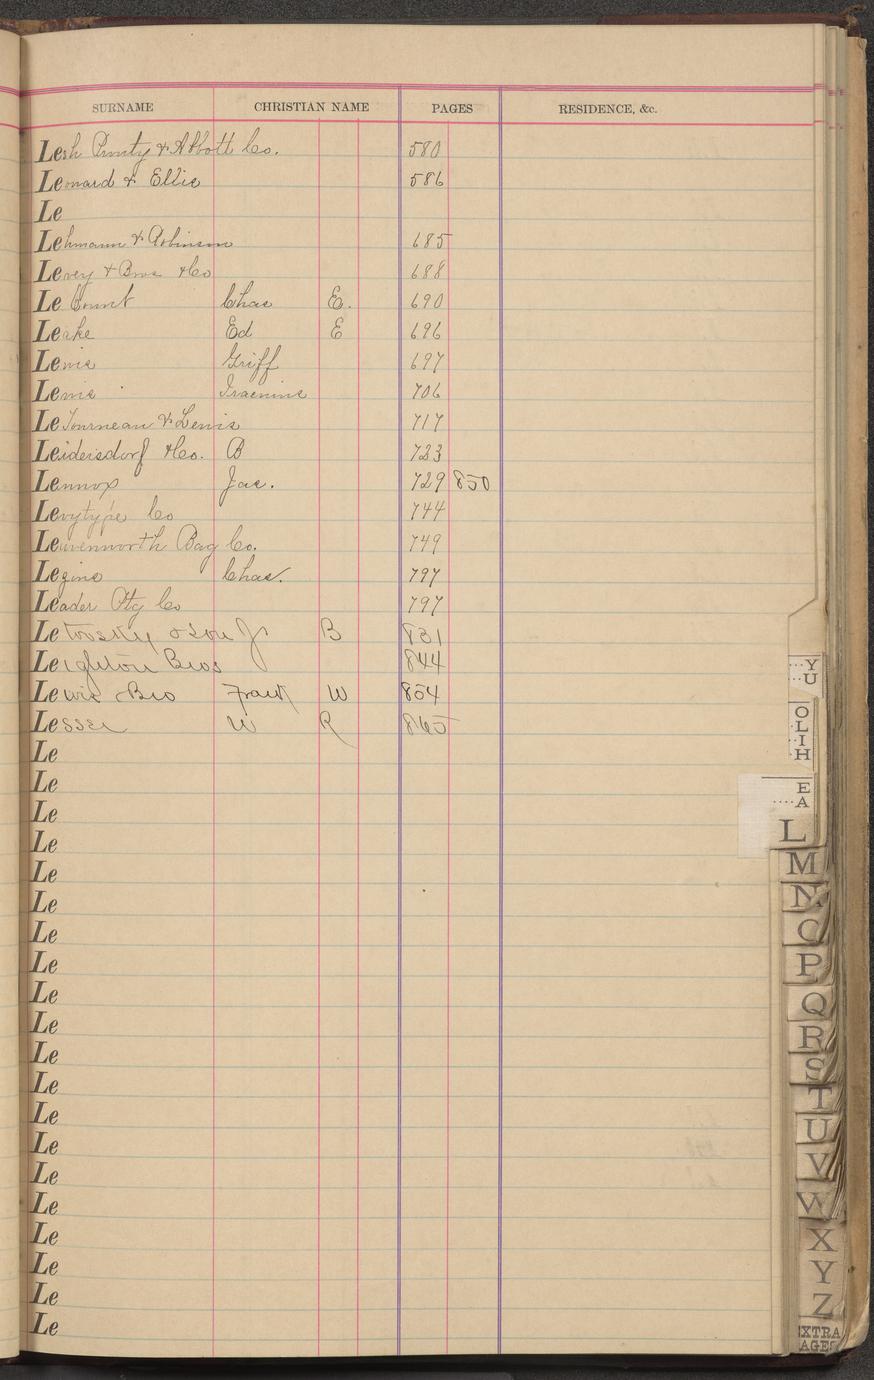 SURNAME CHRISTIAN NAME PAGES RESIDENCE, &c.
Lesh Prouty & Abbott Co. 580
Leonard & Ellis 586
Le
Lehmann & Robinson 685
Levey & Bros & Co 688
Le Count Chas E. 690
Leake Ed E 696
Lewis Griff 697
Lewis 706
LeTourneau & Lewis 717
Leidersdorf & Co. B 723
Lennox Jas. 729 850
Levytype Co 744
Leavenworth Bag Co. 749
Chas. 797
Leader Ptg Co 797
& Son J B 831
Leighton Bros 844
Lewis Bro Frank W 854
Lesser W R 865
Le
Le
Le
Le
Le
Le
Le
Le
Le
Le
Le
Le
Le
Le
Le
Le
Le
Le
Le
Le
Y
U
O
L
I
H
E
A
L
M
N
O
P
Q
R
S
T
U
V
W
X
Y
Z
EXTRA
PAGES